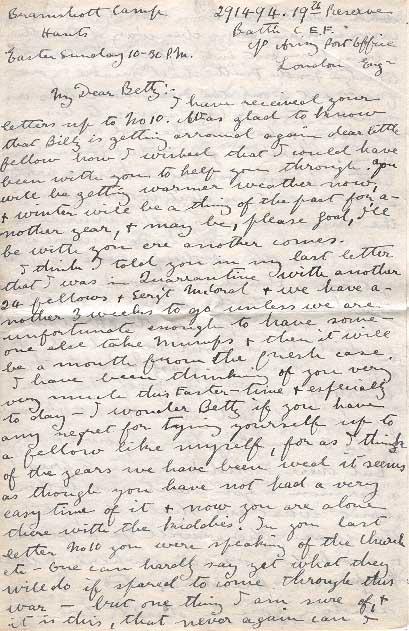 Bramshott Camp
Hants
Easter Sunday 10-30 P.M.
291494. 19th Reserve
Battn C.E.F.
c/o Army Post Office
London Eng
My Dear Betty:-
I have received your
letters up to No 10. Was glad to know
that Billy is getting around again dear little
fellow how I wished that I could have
been with you to help you through. You
will be getting warmer weather now,
& winter will be a thing of the past for a-
nother year, & may be, please God, I'll
be with you ere another comes.
I think I told you in my last letter
that I was in Quarantine with another
24 fellows & Sergt & we have a-
nother 3 weeks to go unless we are
unfortunate enough to have some-
one else take Mumps & then it will
be a month from the fresh case.
I have been thinking of you very
very much this Easter-time & especially
to day - I wonder Betty if you have
any regret for tying yourself up to
a fellow like myself, for as I think
of the years we have been wed it seems
as though you have not had a very
easy time of it & now you are alone
there with the kiddies. In your last
letter No 10 you were speaking of the Church
etc - One can hardly say yet what they
will do if spared to come through this
war - but one thing I am sure of, &
it is this, that never again can I